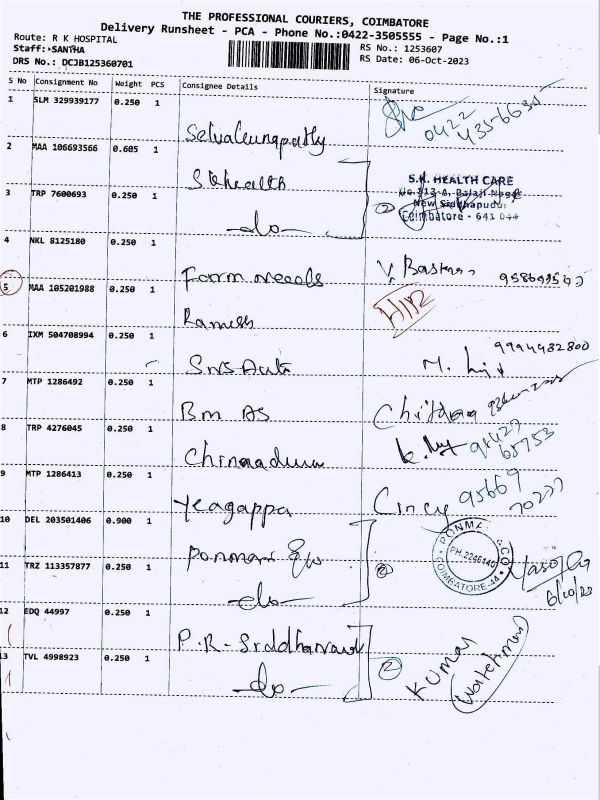 THE PROFESSIONAL COURIERS, COIMBATORE
Delivery Runsheet - PCA - Phone No.:0422-3505555 - Page No.:1
Route: R K HOSPITAL
Staff: SANTHA
RS No.: 1253607
DRS No.: DCJB125360701
RS Date: 06-Oct-2023
S No Consignment No Weight PCS Consignee Details Signature
1 SLM 329939177 0.250 1
0422
2 MAA 106693566 0.605 1 SKhealth
S.K. HEALTH CARE
New Siddhapudur
Coimbatore - 641 044
3 TRP 7600693 0.250 1 -do- 2
4 NKL 8125180 0.250 1 Farm needs V. Baskar
5 MAA 105201988 0.250 1 Ramesh
6 IXM 504708994 0.250 1 SNS Auto 9994432800
7 MTP 1286492 0.250 1 Bm AS Chithra
8 TRP 4276045 0.250 1 Chinnadurai
65753
9 MTP 1286413 0.250 1 Yeagappa Cincy 95669
70277
10 DEL 203501406 0.900 1
PH.2246140
COIMBATORE-44
11 TRZ 113357877 0.250 1 -do- 2
6/10/23
12 EDQ 44997 0.250 1 P.R-Siddhanaid
13 TVL 4998923 0.250 1 -do- 2 Kumar
(Watchman)